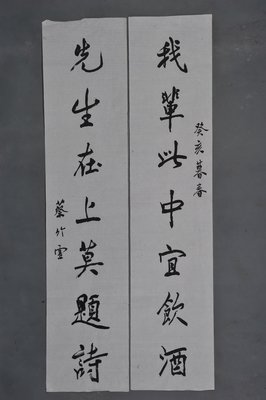 我輩此中宜飲酒
癸亥暮春
先生在上莫題詩
蔡竹雲